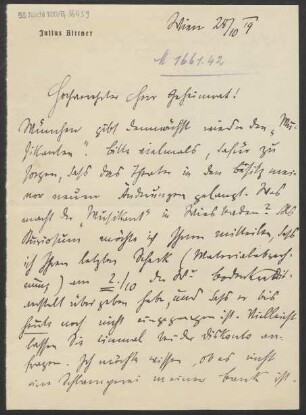 55 Nachl 100/B, 16459
Julius Bittner
Wien 28/10 19
M 1661.42
Hochverehrter Herr Geheimrat!
München gibt demnächst wieder den „Mu-
sikanten“. Bitte vielmals, dafür zu
sorgen, dass das Theater in den Besitz mei-
ner neuen Änderungen gelangt. Was
macht der „Musikant“ in Wiesbaden? Als
Kuriosum möchte ich Ihnen mitteilen, dass
ich Ihren letzten Scheck (Materialabrech-
nung) am 2./10 der
anstalt übergeben habe und dass er bis
heute noch nicht eingegangen ist. Vielleicht
lassen Sie einmal bei der Diskonto an-
fragen. Ich möchte wissen, ob es nicht
eine Schlamperei meiner Bank ist.